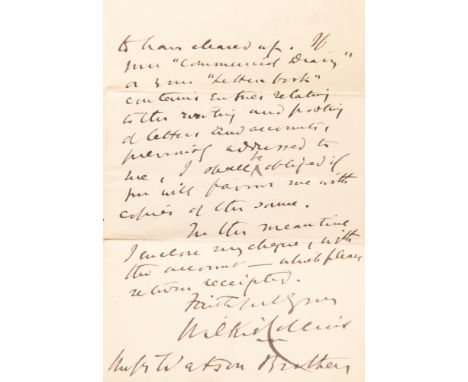 to have cleared up. If
your "Commercial Diary"
or your "Letter book"
contains entries relating
to the writing and posting
of letters and accounts,
previously addressed to
me, I shall be obliged if
you will favour me with
copies of the same.
In the meantime
I enclose my cheque, with
the account — which please
return receipted.
Faithfully yours
Wilkie Collins
Messrs Watson Brothers